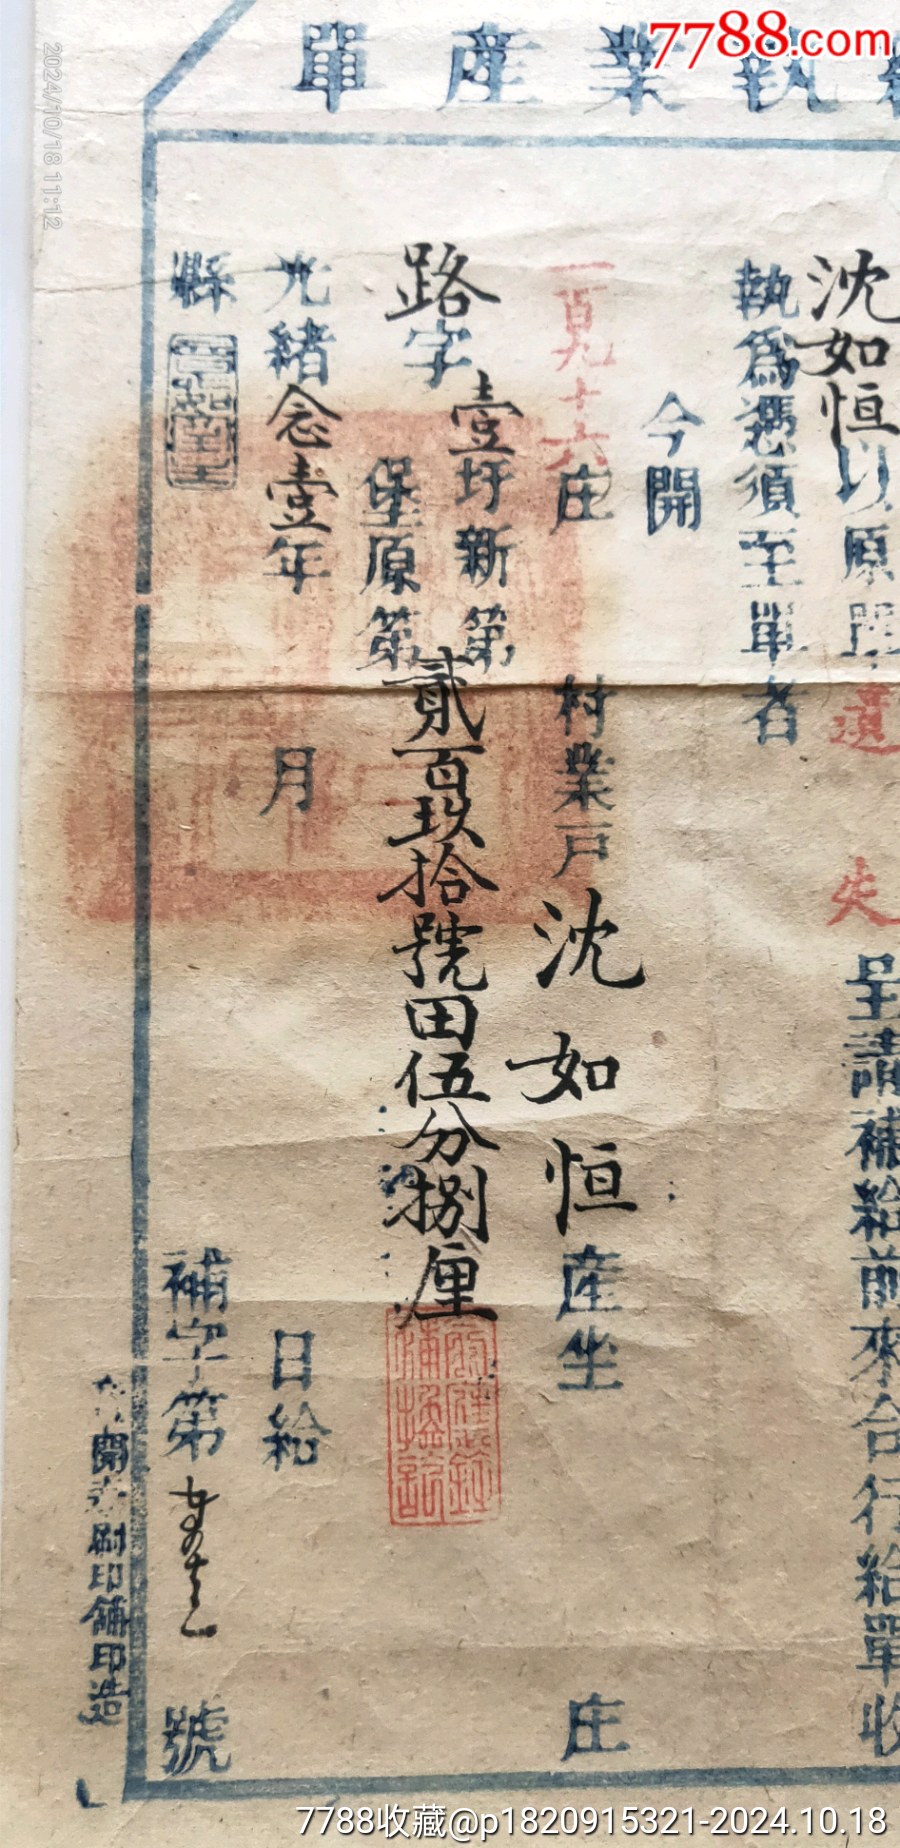 7788.com
執業産單
沈如恒以原單遺失呈請補給前來合行給單收
執爲憑須至單者
今開
一百九十六庄 村業戶沈如恒産坐 庄
路字壹圩新第
堡原第
貳百玖拾號田伍分捌厘
光緒念壹年 月 日給
縣
補字第 號
刷印舖印造
2024/10/18 11:12
7788收藏@p1820915321-2024.10.18